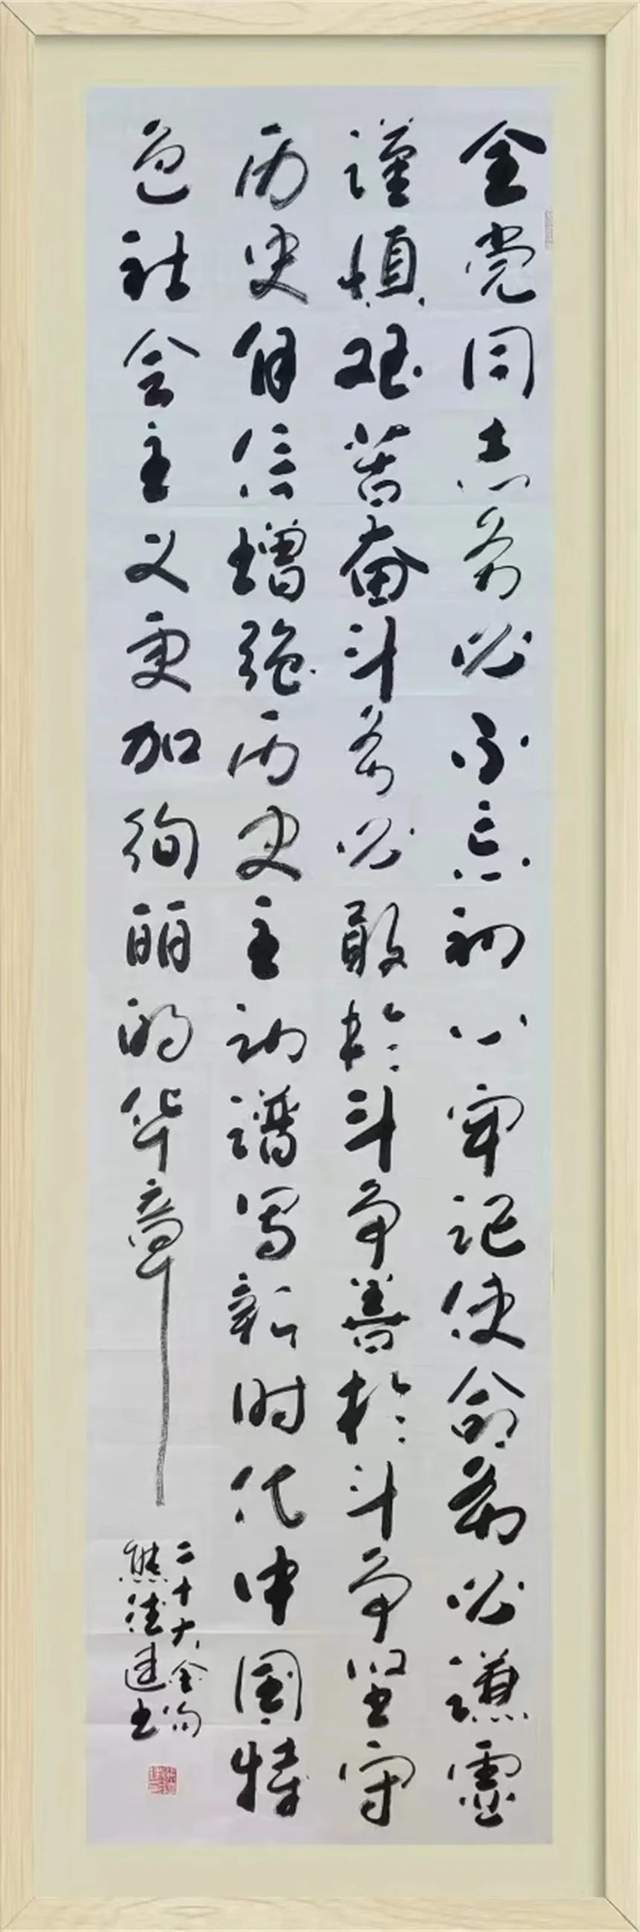 全党同志务必不忘初心牢记使命务必谦虚
谨慎艰苦奋斗务必敢於斗争善於斗争坚定
历史自信增强历史主动谱写新时代中国特
色社会主义更加绚丽的华章
二十大金句
熊德书